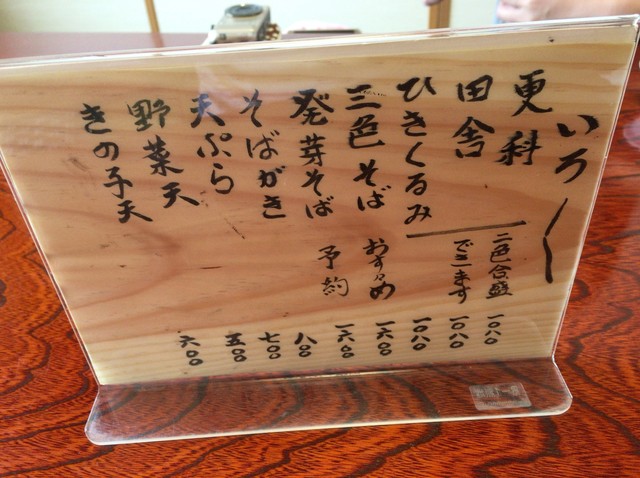 いろ〱
更科
二色合盛
一〇八〇
田舎
できます
一〇八〇
ひきくるみ
一〇八〇
三色そば
おすゝめ
一六〇〇
発芽そば
予約
一六〇〇
そばがき
八〇〇
天ぷら
七〇〇
野菜天
五〇〇
きの子天
六〇〇